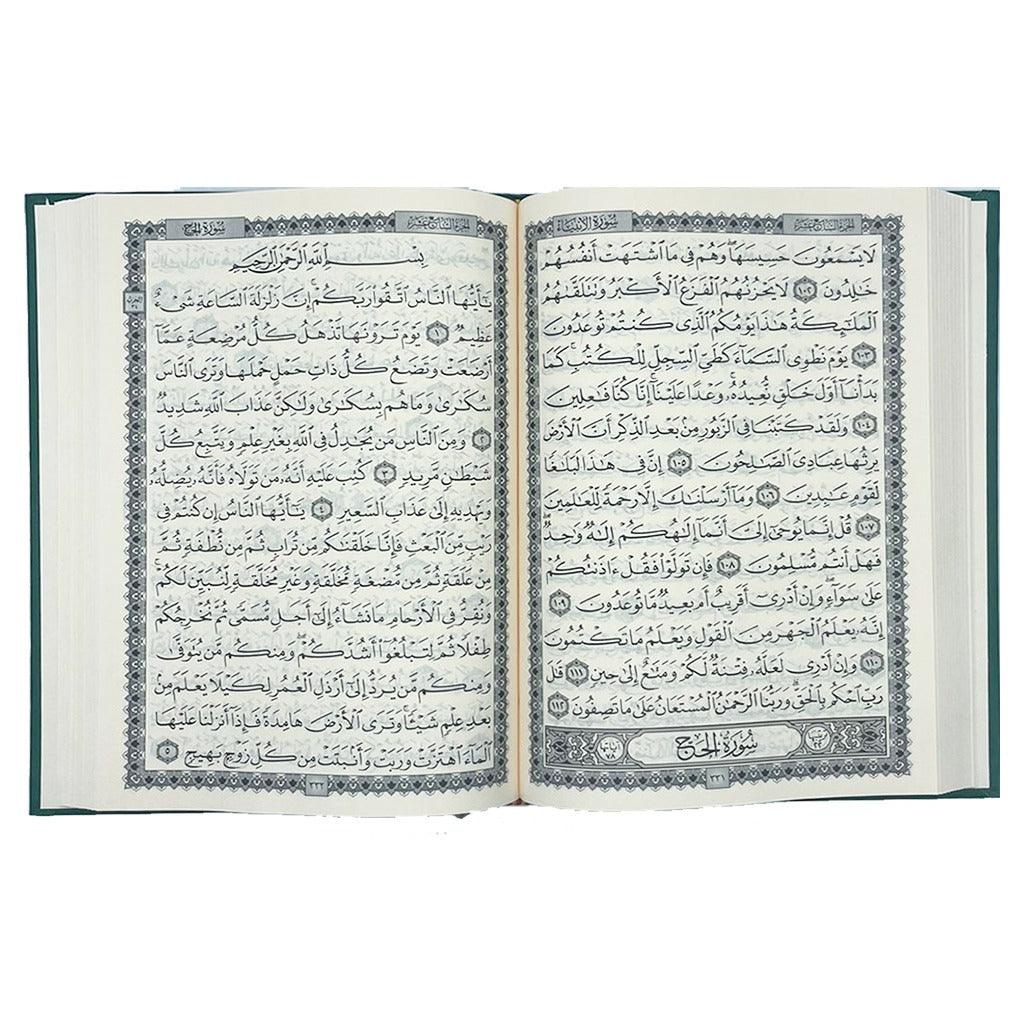 سُورَةُ الأَنْبِيَاءِ الجُزْءُ السَّابِعَ عَشَرَ
لَا يَسْمَعُونَ حَسِيسَهَا ۖ وَهُمْ فِى مَا ٱشْتَهَتْ أَنفُسُهُمْ
خَٰلِدُونَ ١٠٢ لَا يَحْزُنُهُمُ ٱلْفَزَعُ ٱلْأَكْبَرُ وَتَتَلَقَّىٰهُمُ
ٱلْمَلَٰٓئِكَةُ هَٰذَا يَوْمُكُمُ ٱلَّذِى كُنتُمْ تُوعَدُونَ
١٠٣ يَوْمَ نَطْوِى ٱلسَّمَآءَ كَطَىِّ ٱلسِّجِلِّ لِلْكُتُبِ ۚ كَمَا
بَدَأْنَآ أَوَّلَ خَلْقٍ نُّعِيدُهُۥ ۚ وَعْدًا عَلَيْنَآ ۚ إِنَّا كُنَّا فَٰعِلِينَ
١٠٤ وَلَقَدْ كَتَبْنَا فِى ٱلزَّبُورِ مِنۢ بَعْدِ ٱلذِّكْرِ أَنَّ ٱلْأَرْضَ
يَرِثُهَا عِبَادِىَ ٱلصَّٰلِحُونَ ١٠٥ إِنَّ فِى هَٰذَا لَبَلَٰغًا
لِّقَوْمٍ عَٰبِدِينَ ١٠٦ وَمَآ أَرْسَلْنَٰكَ إِلَّا رَحْمَةً لِّلْعَٰلَمِينَ
١٠٧ قُلْ إِنَّمَا يُوحَىٰٓ إِلَىَّ أَنَّمَآ إِلَٰهُكُمْ إِلَٰهٌ وَٰحِدٌ ۖ
فَهَلْ أَنتُم مُّسْلِمُونَ ١٠٨ فَإِن تَوَلَّوْا۟ فَقُلْ ءَاذَنتُكُمْ
عَلَىٰ سَوَآءٍ ۖ وَإِنْ أَدْرِىٓ أَقَرِيبٌ أَم بَعِيدٌ مَّا تُوعَدُونَ ١٠٩
إِنَّهُۥ يَعْلَمُ ٱلْجَهْرَ مِنَ ٱلْقَوْلِ وَيَعْلَمُ مَا تَكْتُمُونَ
١١٠ وَإِنْ أَدْرِى لَعَلَّهُۥ فِتْنَةٌ لَّكُمْ وَمَتَٰعٌ إِلَىٰ حِينٍ ١١١ قَٰلَ
رَبِّ ٱحْكُم بِٱلْحَقِّ ۗ وَرَبُّنَا ٱلرَّحْمَٰنُ ٱلْمُسْتَعَانُ عَلَىٰ مَا تَصِفُونَ ١١٢
سُورَةُ الحَجِّ آيَاتُهَا ٧٨
٣٣١
سُورَةُ الحَجِّ الجُزْءُ السَّابِعَ عَشَرَ
بِسْمِ ٱللَّهِ ٱلرَّحْمَٰنِ ٱلرَّحِيمِ
يَٰٓأَيُّهَا ٱلنَّاسُ ٱتَّقُوا۟ رَبَّكُمْ ۚ إِنَّ زَلْزَلَةَ ٱلسَّاعَةِ شَىْءٌ
عَظِيمٌ ١ يَوْمَ تَرَوْنَهَا تَذْهَلُ كُلُّ مُرْضِعَةٍ عَمَّآ
أَرْضَعَتْ وَتَضَعُ كُلُّ ذَاتِ حَمْلٍ حَمْلَهَا وَتَرَى ٱلنَّاسَ
سُكَٰرَىٰ وَمَا هُم بِسُكَٰرَىٰ وَلَٰكِنَّ عَذَابَ ٱللَّهِ شَدِيدٌ
٢ وَمِنَ ٱلنَّاسِ مَن يُجَٰدِلُ فِى ٱللَّهِ بِغَيْرِ عِلْمٍ وَيَتَّبِعُ كُلَّ
شَيْطَٰنٍ مَّرِيدٍ ٣ كُتِبَ عَلَيْهِ أَنَّهُۥ مَن تَوَلَّاهُ فَأَنَّهُۥ يُضِلُّهُۥ
وَيَهْدِيهِ إِلَىٰ عَذَابِ ٱلسَّعِيرِ ٤ يَٰٓأَيُّهَا ٱلنَّاسُ إِن كُنتُمْ فِى
رَيْبٍ مِّنَ ٱلْبَعْثِ فَإِنَّا خَلَقْنَٰكُم مِّن تُرَابٍ ثُمَّ مِن نُّطْفَةٍ ثُمَّ
مِنْ عَلَقَةٍ ثُمَّ مِن مُّضْغَةٍ مُّخَلَّقَةٍ وَغَيْرِ مُخَلَّقَةٍ لِّنُبَيِّنَ لَكُمْ ۚ
وَنُقِرُّ فِى ٱلْأَرْحَامِ مَا نَشَآءُ إِلَىٰٓ أَجَلٍ مُّسَمًّى ثُمَّ نُخْرِجُكُمْ
طِفْلًا ثُمَّ لِتَبْلُغُوٓا۟ أَشُدَّكُمْ ۖ وَمِنكُم مَّن يُتَوَفَّىٰ
وَمِنكُم مَّن يُرَدُّ إِلَىٰٓ أَرْذَلِ ٱلْعُمُرِ لِكَيْلَا يَعْلَمَ مِنۢ
بَعْدِ عِلْمٍ شَيْـًٔا ۚ وَتَرَى ٱلْأَرْضَ هَامِدَةً فَإِذَآ أَنزَلْنَا عَلَيْهَا
ٱلْمَآءَ ٱهْتَزَّتْ وَرَبَتْ وَأَنۢبَتَتْ مِن كُلِّ زَوْجٍۭ بَهِيجٍ ٥
٣٣٢